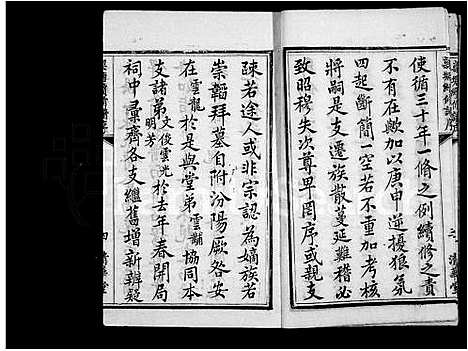 使循三十年一修之例續修之責
不有在歟加以庚申逆擾狼氛
四起斷簡一空若不重加考核
將嗣是支遷族散蔓延難稽必
致昭穆失次尊卑罔序或親支
疎若途人或非宗認為嫡族若
崇韜拜墓自附汾陽厥咎安
在雲龍於是與堂弟雲黼協同本
支諸弟文俊雲光明芳於去年春開局
祠中彙齊各支繼舊增新辨疑